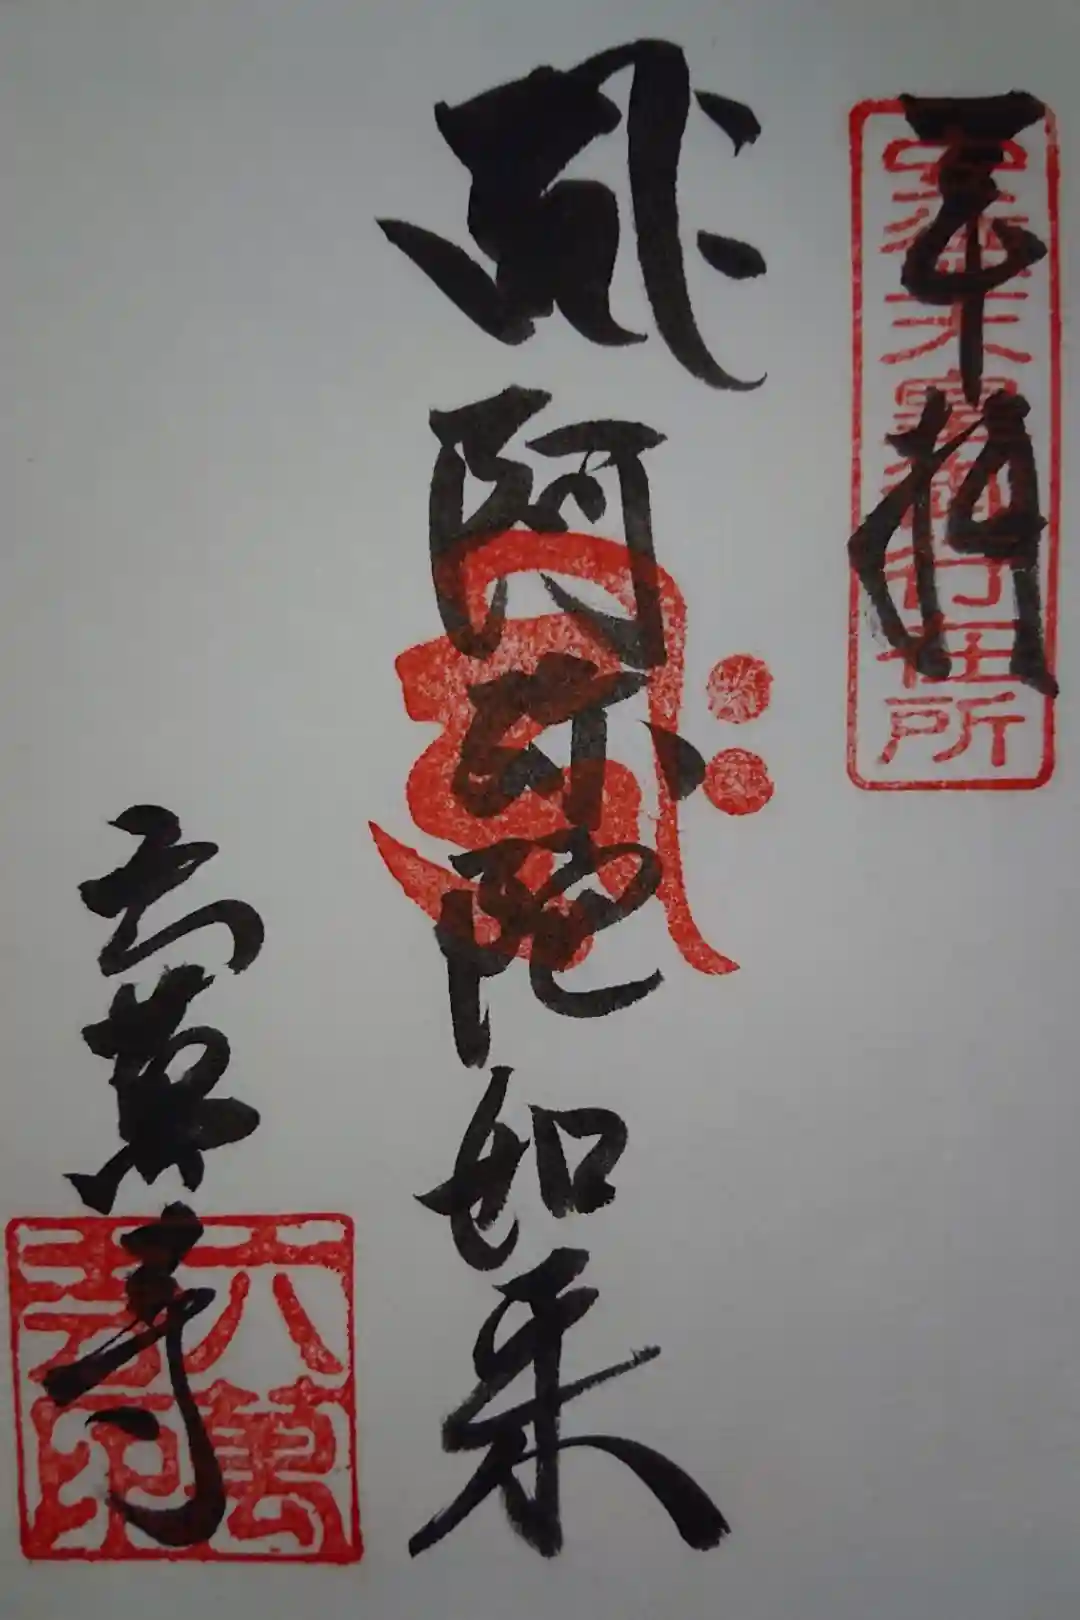 奉拝
安徳天皇御行在所
𑖮𑖿𑖨𑖱𑖾 阿弥陀如来
𑖮𑖿𑖨𑖱𑖾
六萬寺
六萬
寺印